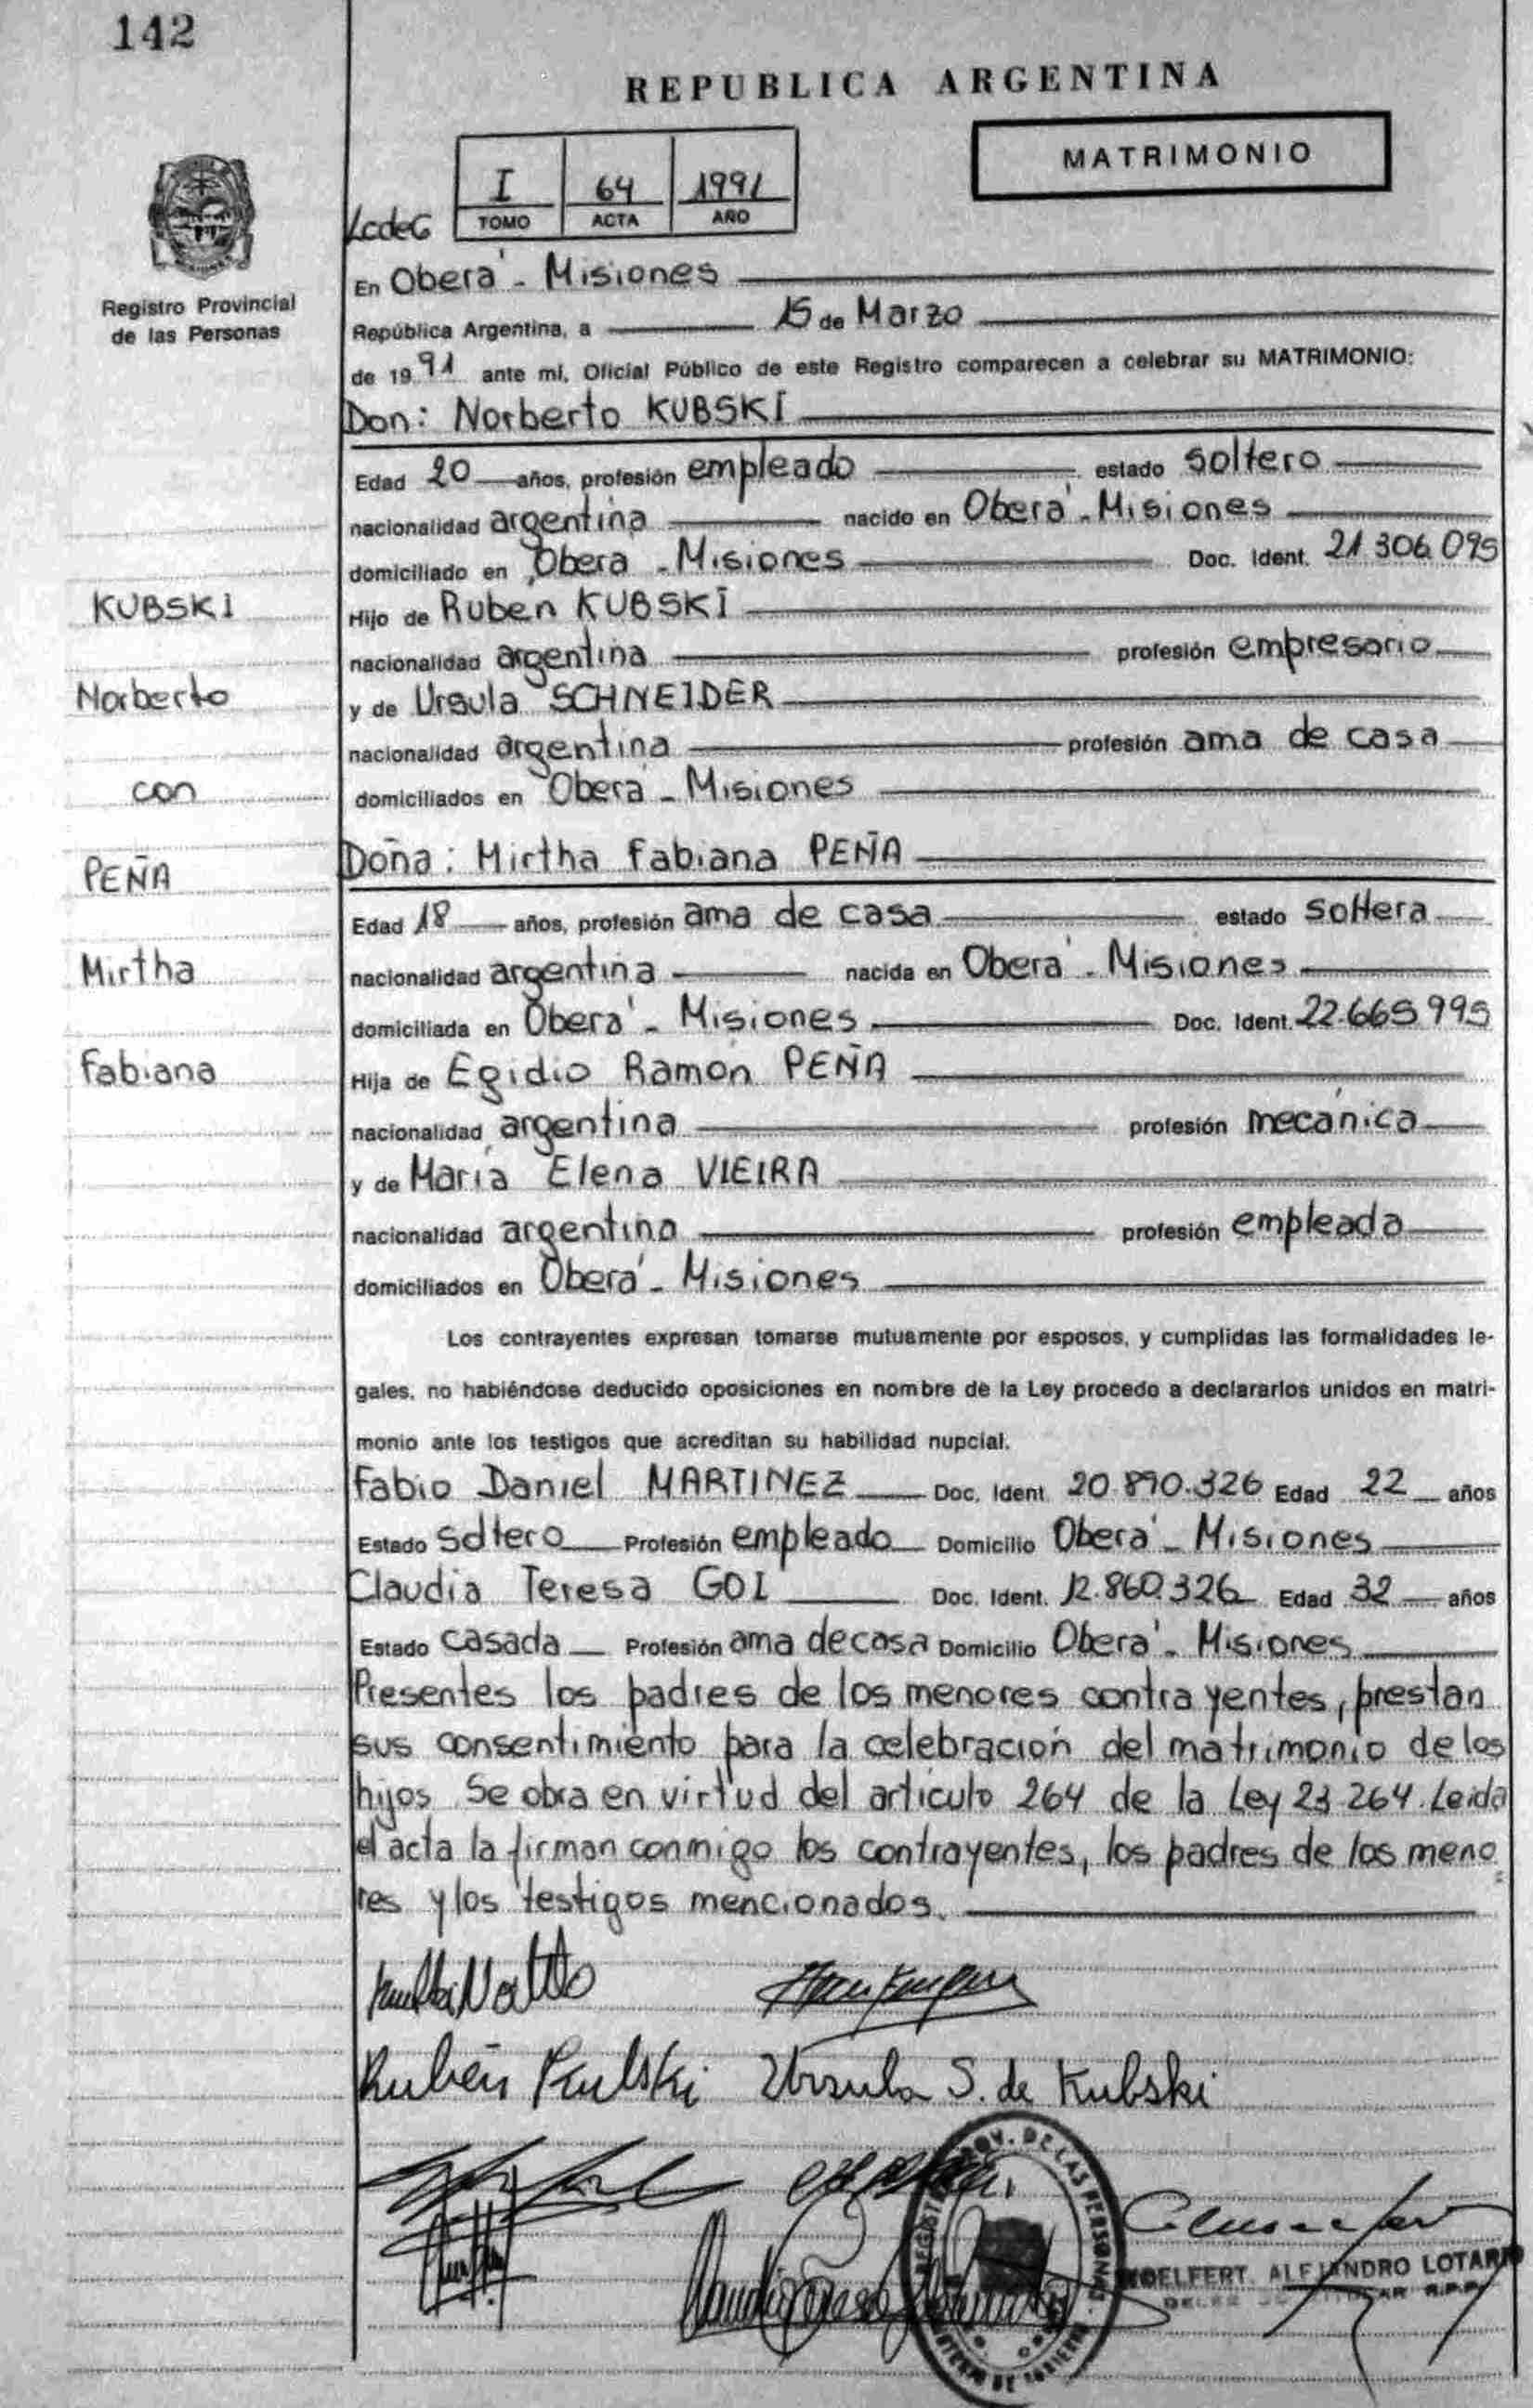 142
REPUBLICA ARGENTINA
MATRIMONIO
I 64 1991
TOMO ACTA AÑO
Registro Provincial
de las Personas
En Oberá - Misiones
República Argentina, a 15 de Marzo
de 1991 ante mi, Oficial Público de este Registro comparecen a celebrar su MATRIMONIO:
Don: Norberto KUBSKI
Edad 20 años, profesión empleado estado soltero
nacionalidad argentina nacido en Oberá - Misiones
domiciliado en Oberá - Misiones Doc. Ident. 21.306.095
KUBSKI
Hijo de Rubén KUBSKI
nacionalidad argentina profesión empresario
Norberto
y de Ursula SCHNEIDER
nacionalidad argentina profesión ama de casa
con
domiciliados en Oberá - Misiones
PEÑA
Doña: Mirtha Fabiana PEÑA
Edad 18 años, profesión ama de casa estado soltera
Mirtha
nacionalidad argentina nacida en Oberá - Misiones
domiciliada en Oberá - Misiones Doc. Ident. 22.665.995
Fabiana
Hija de Egidio Ramón PEÑA
nacionalidad argentina profesión mecánica
y de María Elena VIEIRA
nacionalidad argentina profesión empleada
domiciliados en Oberá - Misiones
Los contrayentes expresan tomarse mutuamente por esposos, y cumplidas las formalidades le-
gales, no habiéndose deducido oposiciones en nombre de la Ley procedo a declararlos unidos en matri-
monio ante los testigos que acreditan su habilidad nupcial.
Fabio Daniel MARTINEZ Doc. Ident. 20.890.326 Edad 22 años
Estado soltero Profesión empleado Domicilio Oberá - Misiones
Claudia Teresa GOI Doc. Ident. 12.860.326 Edad 32 años
Estado casada Profesión ama de casa Domicilio Oberá - Misiones
Presentes los padres de los menores contrayentes, prestan
sus consentimiento para la celebración del matrimonio de los
hijos. Se obra en virtud del artículo 264 de la Ley 23.264. Leida
el acta la firman conmigo los contrayentes, los padres de los meno
res y los testigos mencionados.
Rubén Kubski Ursula S. de Kubski
DE LAS PERSONAS
ALEJANDRO LOTARIO